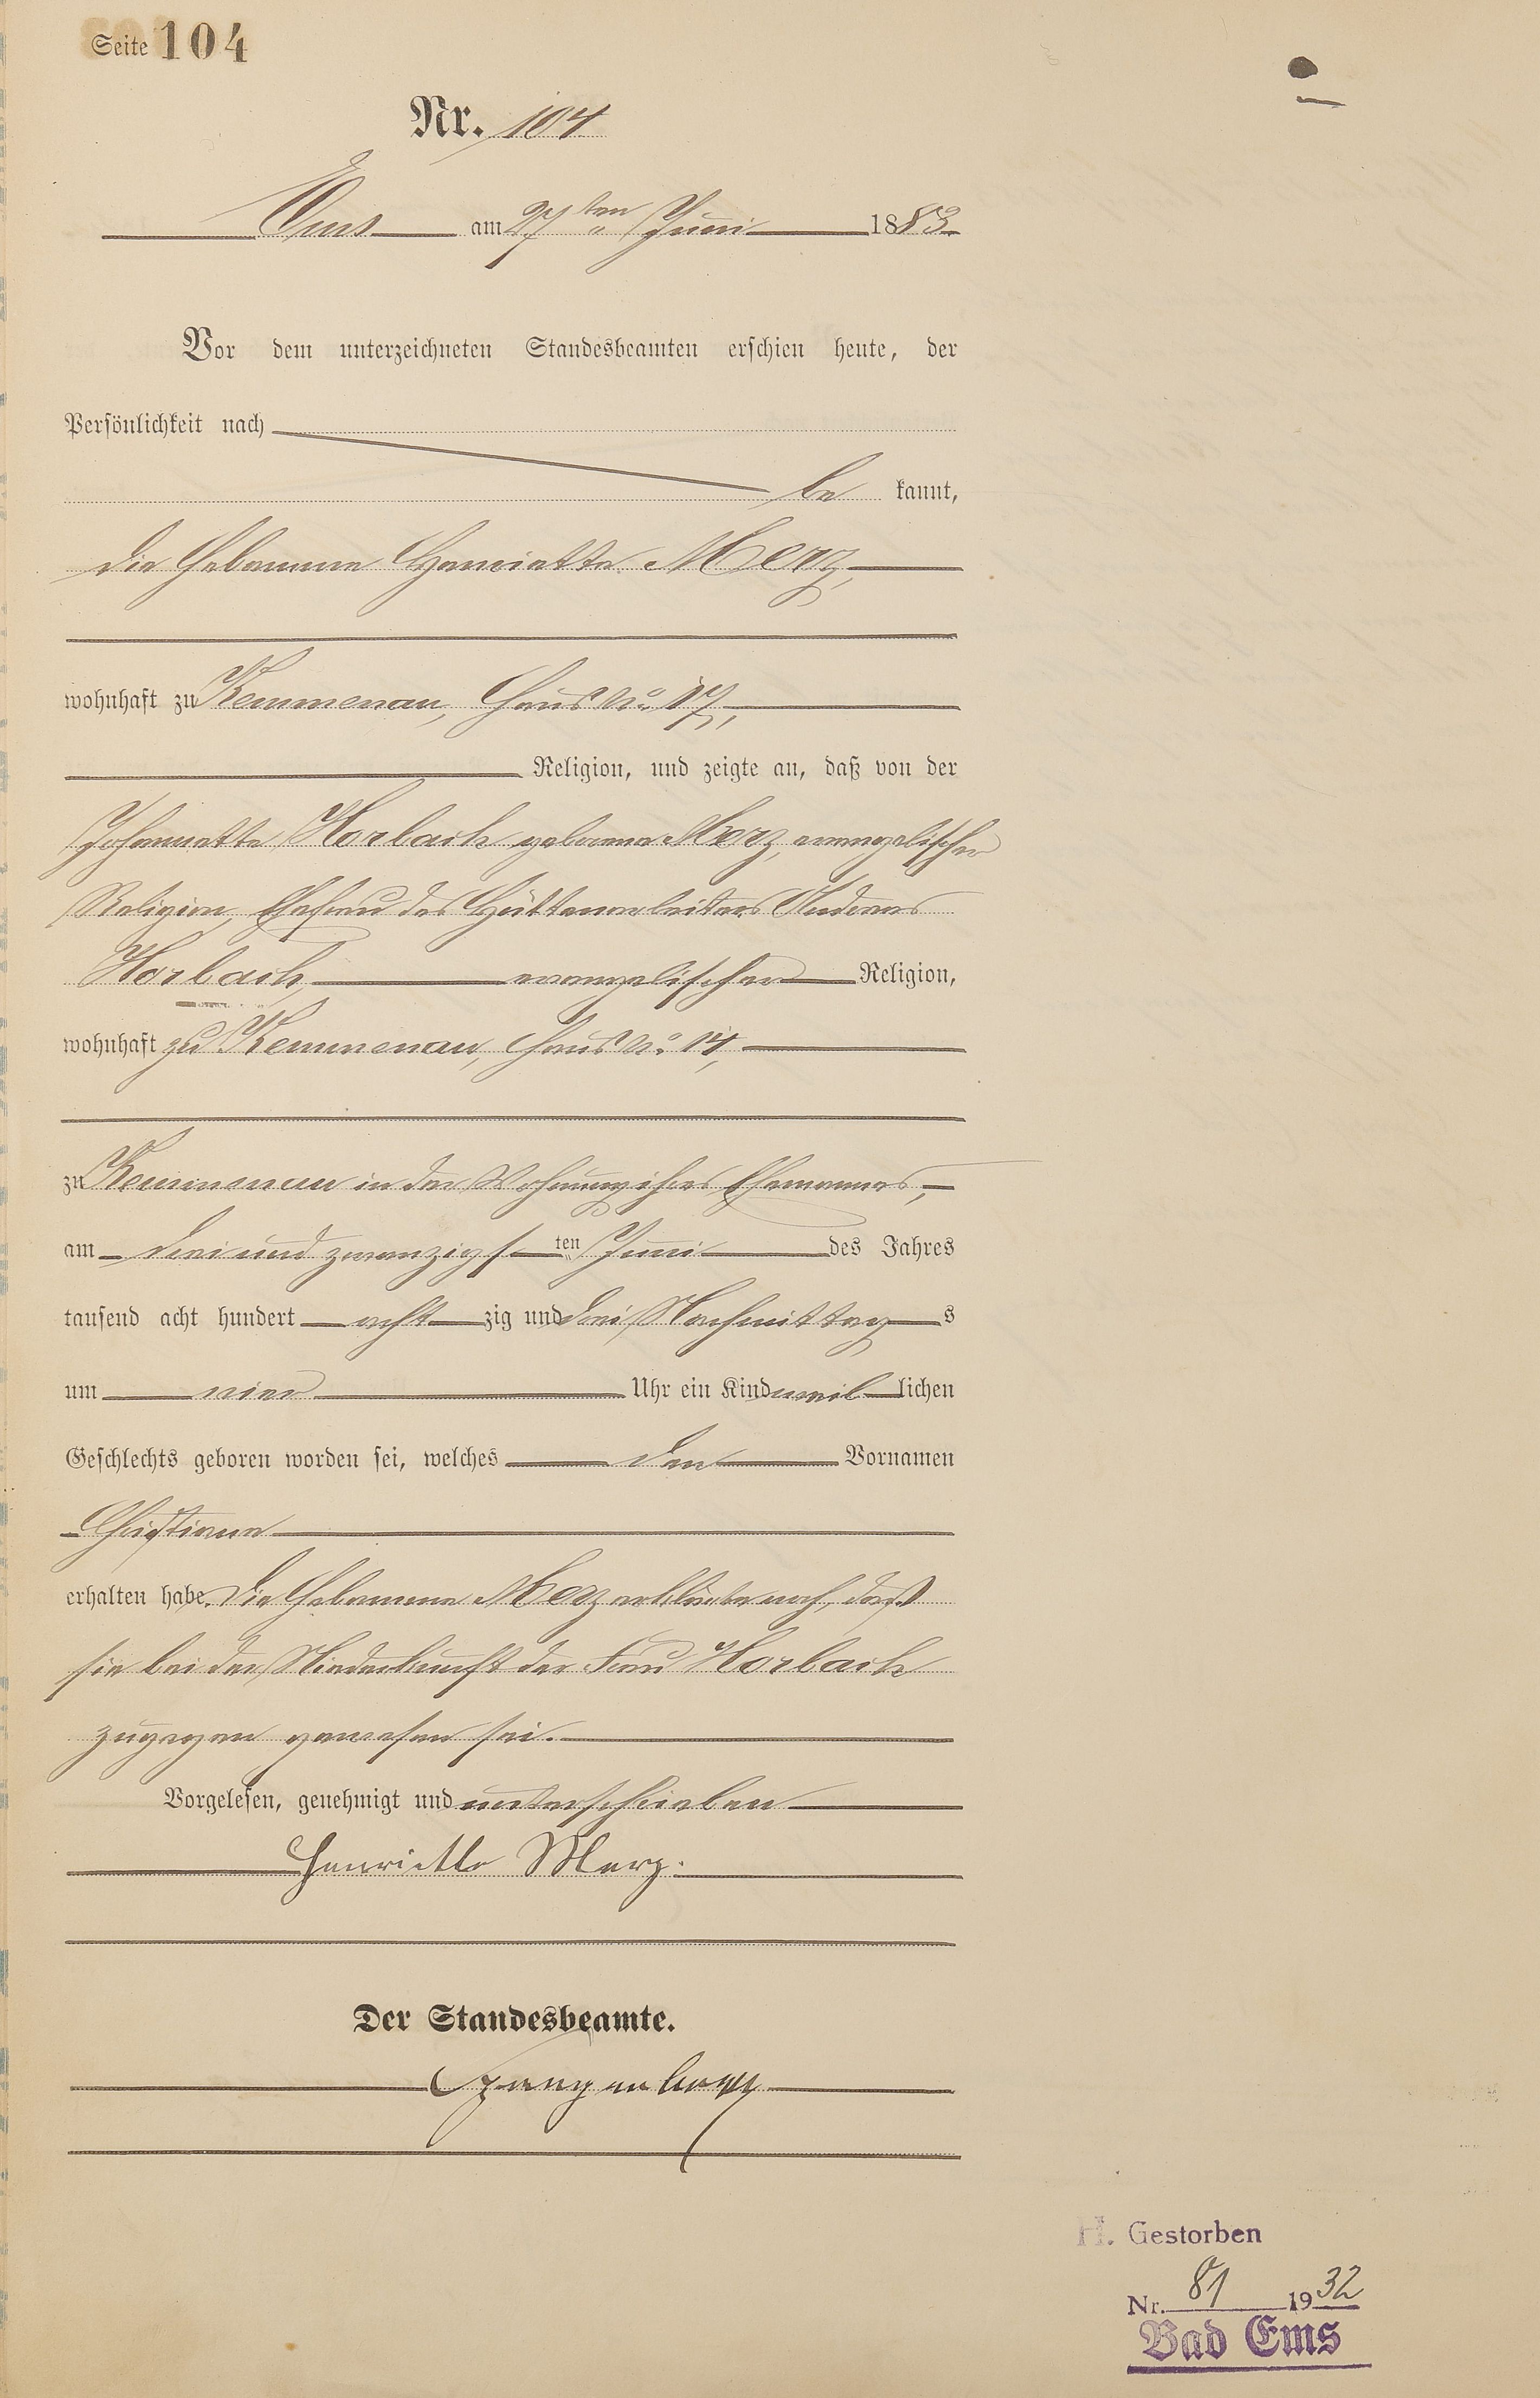 Seite 104
Nr. 104
Ems am 27ten Juni 1883.
Vor dem unterzeichneten Standesbeamten erschien heute, der
Persönlichkeit nach
be kannt,
die Hebamme Henriette Merz,
wohnhaft zu Kemmenau, Haus No. 17,
Religion, und zeigte an, daß von der
Johannette Horbach geborene Merz, evangelischer
Religion, Ehefrau des Hüttenarbeiters Andreas
Horbach, evangelischer Religion,
wohnhaft zu Kemmenau, Haus No. 14,
zu Kemmenau in der Wohnung ihres Ehemannes,
am drei und zwanzigsten Juni des Jahres
tausend acht hundert acht zig und drei, Nachmittags
um vier Uhr ein Kind weiblichen
Geschlechts geboren worden sei, welches den Vornamen
Christiane
erhalten habe. Die Hebamme Merz erklärte noch, daß
sie bei der Niederkunft der Frau Horbach
zugegen gewesen sei.
Vorgelesen, genehmigt und unterschrieben
Henriette Merz.
Der Standesbeamte.
H. Gestorben
Nr. 81 1932
Bad Ems